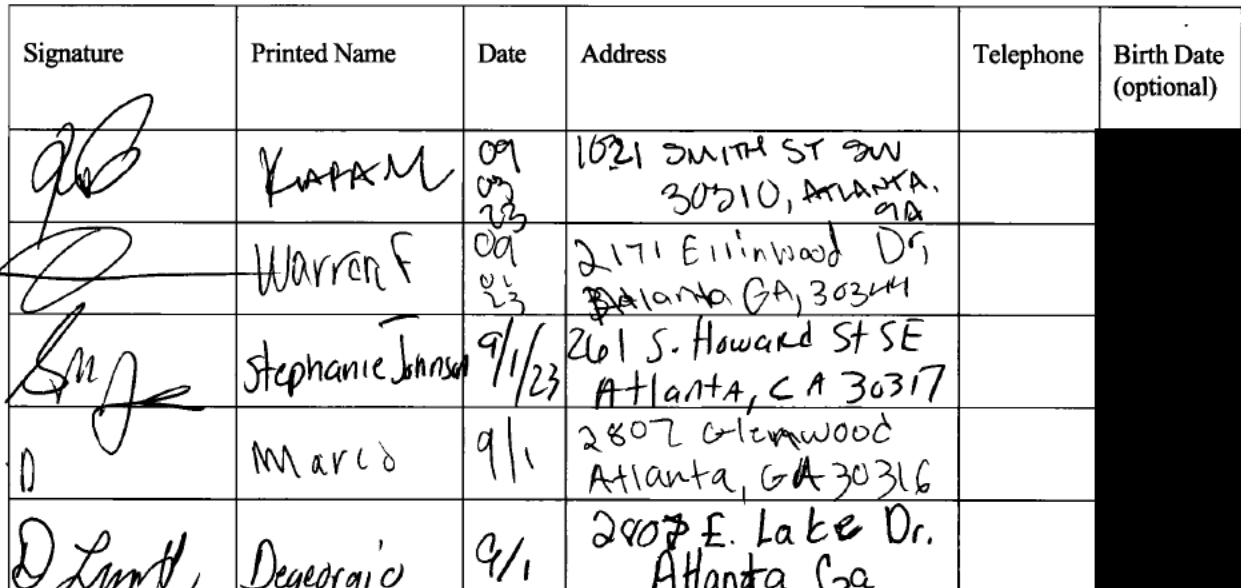 Signature Printed Name Date Address Telephone Birth Date
(optional)
KAPAM 09
03
23 1021 SMITH ST SW
30310, ATLANTA,
GA
Warren F 09
01
23 2171 Ellinwood Dr,
Atlanta GA, 30344
Stephanie Johnson 9/1/23 261 S. Howard St SE
Atlanta, CA 30317
Marco 9/1 2807 Glenwood
Atlanta, GA 30316
Degeorgio 9/1 2807 E. Lake Dr.
Atlanta Ga